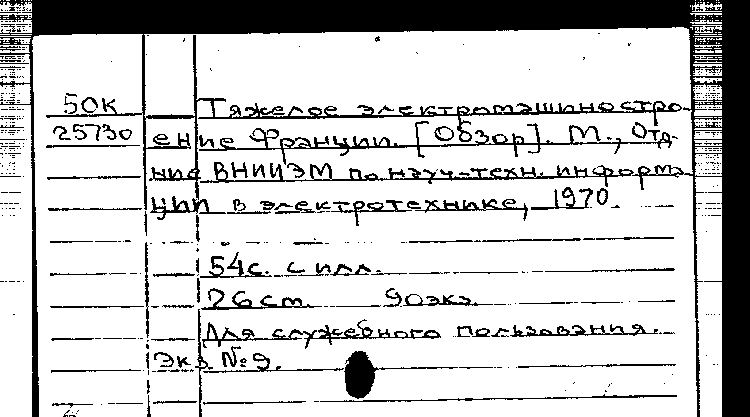 50К Тяжелое электромашиностро-
25730 ение Франции. [Обзор]. М., Отд-
ние ВНИИЭМ по науч-техн. информа-
ции в электротехнике, 1970.
54с. с илл.
26см. 90экз.
Для служебного пользования.
Экз. №9.